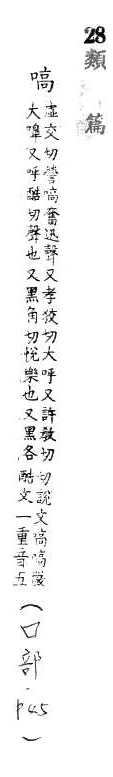 28
類篇
嗃
虛交切嗃嗃奮迅聲又孝狡切大呼又許教切切說文嗃嗃嚴
大嘷又呼酷切聲也又黑角切悅樂也又黑各酷文一重音五
(口部·p45)